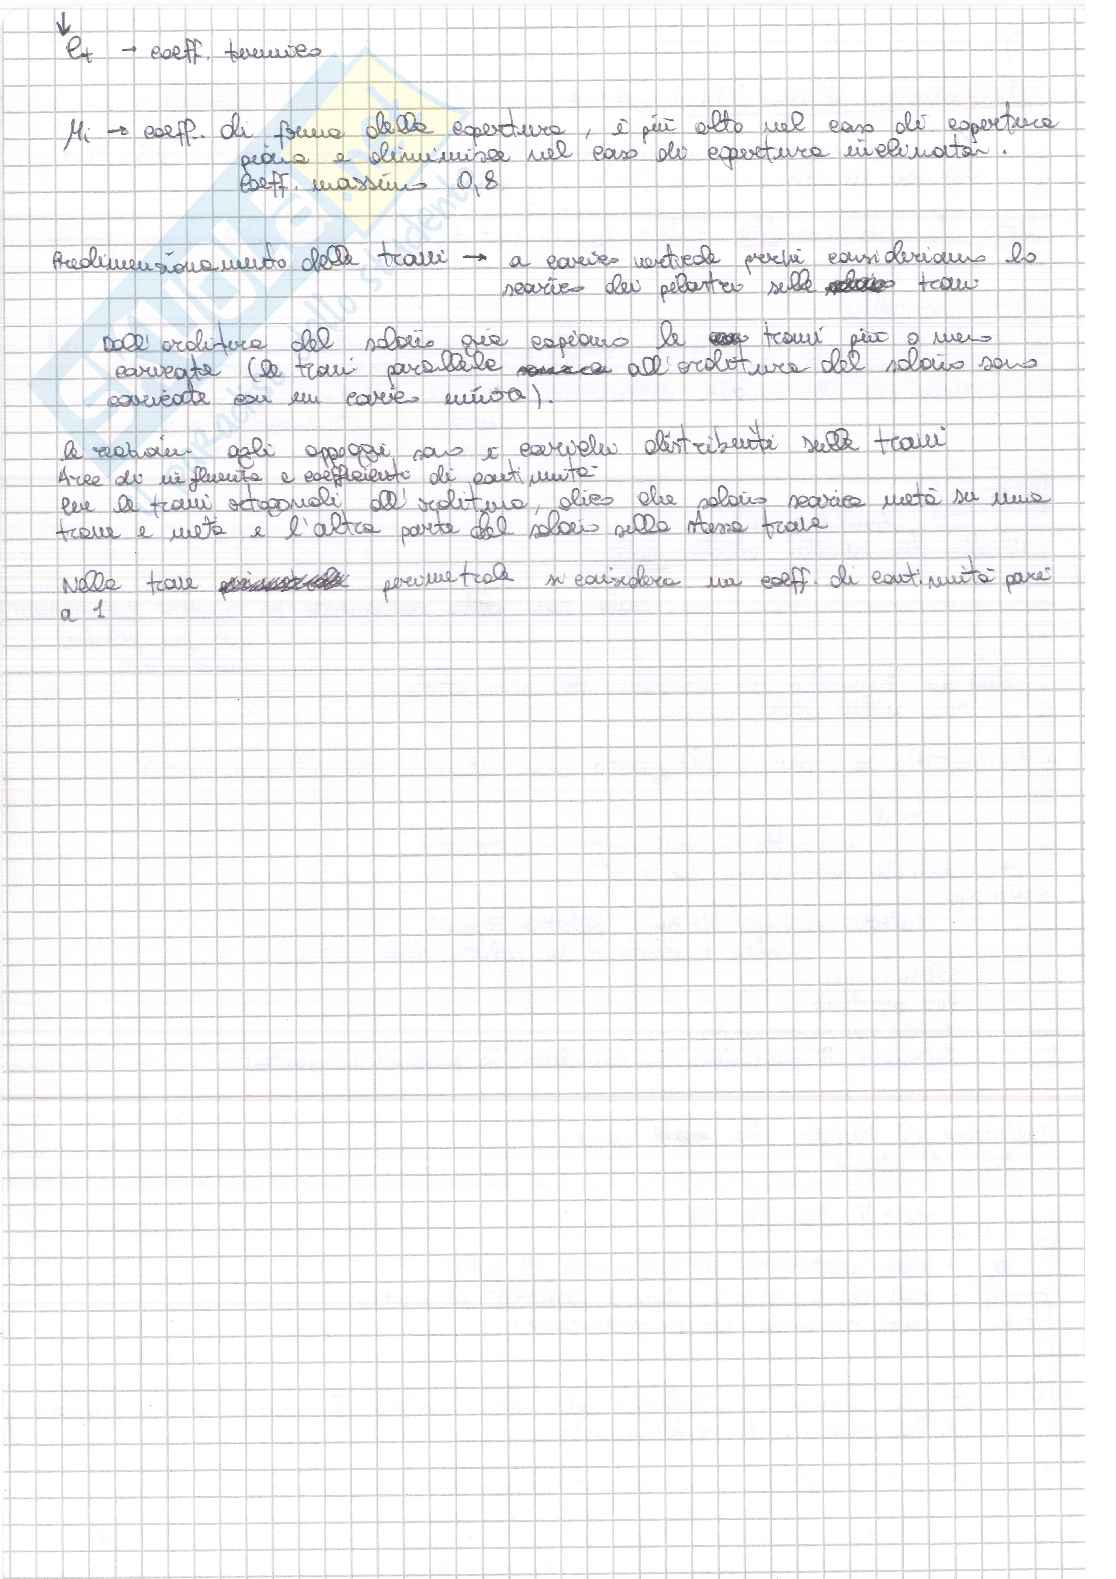 ↓
Ct → coeff. termico
μi → coeff. di forma della copertura, è più alto nel caso di copertura
piana e diminuisce nel caso di copertura inclinata.
Coeff. massimo 0,8
Predimensionamento delle travi → a carico verticale perché consideriamo lo
scarico dei pilastri sulle travi
Dall'orditura del solaio già capiamo le travi più o meno
caricate (le travi parallele all'orditura del solaio sono
caricate con un carico minore).
le reazioni agli appoggi sono i carichi distribuiti sulle travi
Aree di influenza e coefficiente di continuità
Per le travi ortogonali all'orditura, dico che solaio scarica metà su una
trave e metà e l'altra parte del solaio sulla stessa trave
Nelle trave perimetrale si considera un coeff. di continuità pari
a 1